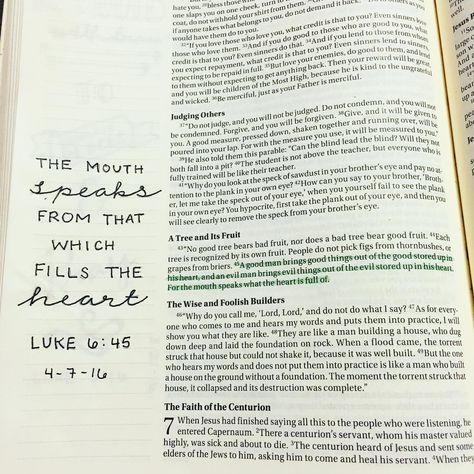 THE MOUTH
speaks
FROM THAT
WHICH
FILLS THE
heart
LUKE 6:45
4-7-16
hate you, ²⁸bless those who curse you,
one slaps you on one cheek, turn
coat, do not withhold your shirt from them.
if anyone takes what belongs to you, do not demand it back.
would have them do to you.
³²"If you love those who love you, what credit is that to you? Even sinners love
those who love them. ³³And if you do good to those who are good to you, what
credit is that to you? Even sinners do that. ³⁴And if you lend to those from whom
you expect repayment, what credit is that to you? Even sinners lend to sinners,
expecting to be repaid in full. ³⁵But love your enemies, do good to them, and lend
to them without expecting to get anything back. Then your reward will be great,
and you will be children of the Most High, because he is kind to the ungrateful
and wicked. ³⁶Be merciful, just as your Father is merciful.
Judging Others
³⁷"Do not judge, and you will not be judged. Do not condemn, and you will not
be condemned. Forgive, and you will be forgiven. ³⁸Give, and it will be given to
you. A good measure, pressed down, shaken together and running over, will be
poured into your lap. For with the measure you use, it will be measured to you."
³⁹He also told them this parable: "Can the blind lead the blind? Will they not
both fall into a pit? ⁴⁰The student is not above the teacher, but everyone who is
fully trained will be like their teacher.
⁴¹"Why do you look at the speck of sawdust in your brother's eye and pay no at-
tention to the plank in your own eye? ⁴²How can you say to your brother, 'Broth-
er, let me take the speck out of your eye,' when you yourself fail to see the plank
in your own eye? You hypocrite, first take the plank out of your eye, and then you
will see clearly to remove the speck from your brother's eye.
A Tree and Its Fruit
⁴³"No good tree bears bad fruit, nor does a bad tree bear good fruit. ⁴⁴Each
tree is recognized by its own fruit. People do not pick figs from thornbushes, or
grapes from briers. ⁴⁵A good man brings good things out of the good stored up in
his heart, and an evil man brings evil things out of the evil stored up in his heart.
For the mouth speaks what the heart is full of.
The Wise and Foolish Builders
⁴⁶"Why do you call me, 'Lord, Lord,' and do not do what I say? ⁴⁷As for every-
one who comes to me and hears my words and puts them into practice, I will
show you what they are like. ⁴⁸They are like a man building a house, who dug
down deep and laid the foundation on rock. When a flood came, the torrent
struck that house but could not shake it, because it was well built. ⁴⁹But the one
who hears my words and does not put them into practice is like a man who built
a house on the ground without a foundation. The moment the torrent struck that
house, it collapsed and its destruction was complete."
The Faith of the Centurion
7 When Jesus had finished saying all this to the people who were listening, he
entered Capernaum. ²There a centurion's servant, whom his master valued
highly, was sick and about to die. ³The centurion heard of Jesus and sent some
elders of the Jews to him, asking him to come and heal his servant. ⁴When they